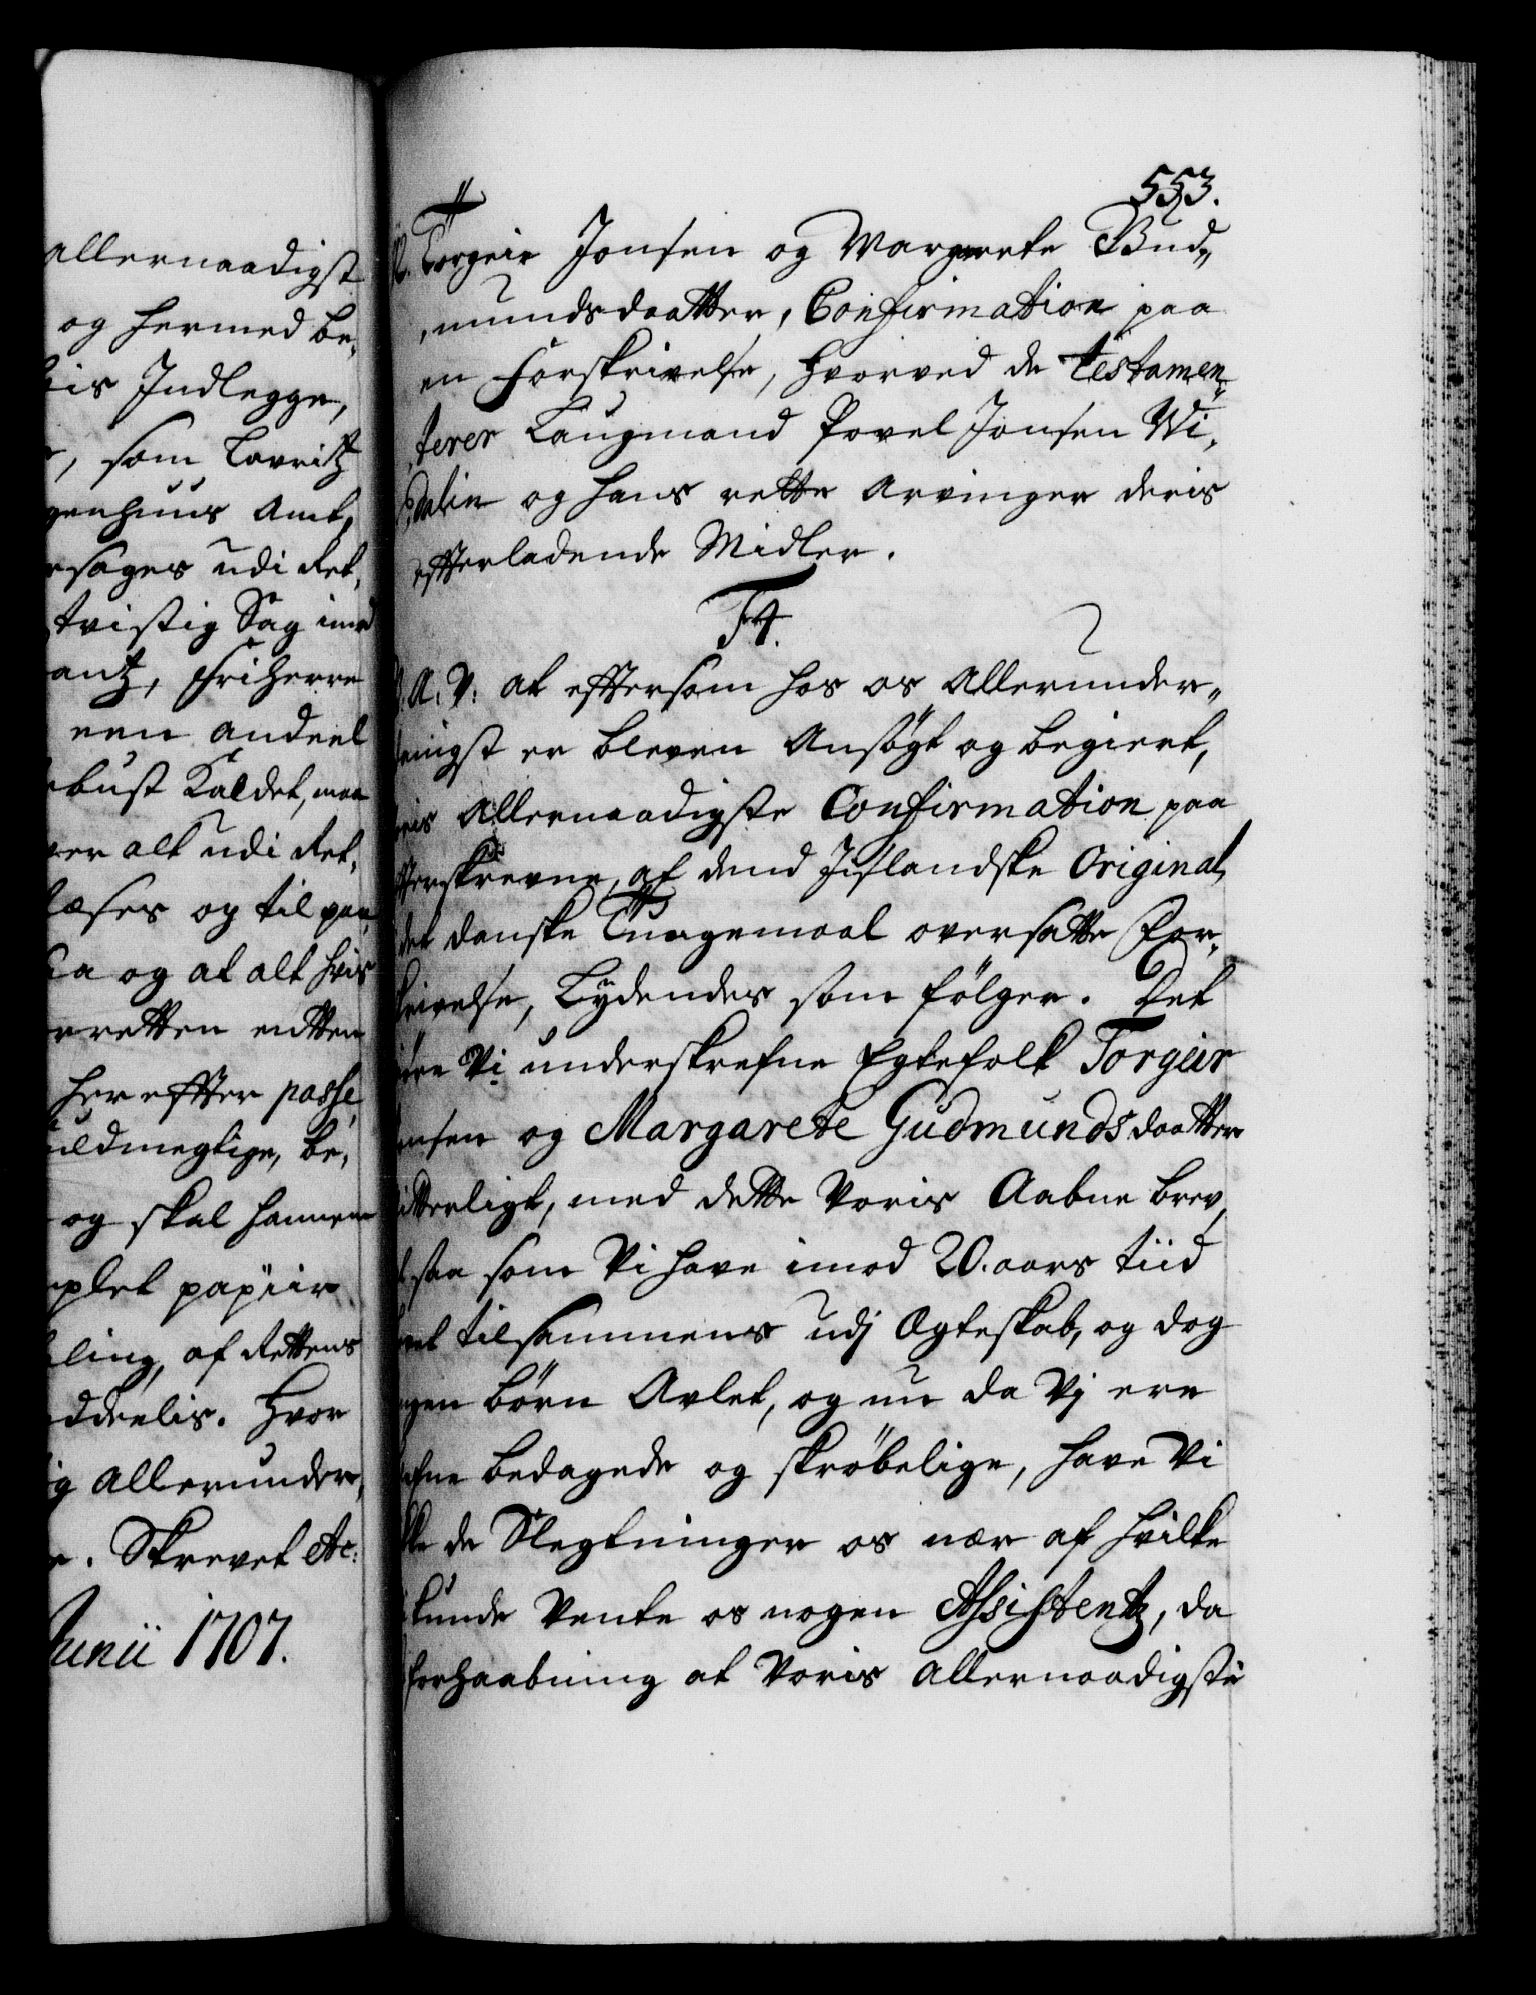 allernaadigst
og hermed be,
is Indlegge,
som Lavritz
genhuus Amt,
rsages udi Ret,
tvistig Sag imod
antz, Friherre
een andeel
bust Kaldet, maa
er alt udi Ret,
læses og til paa
a og at alt hvis
rretten entten
her effter passe,
uldmegtige, be,
og skal hannem
plet papiir
ling, af Rettens
ddeelis. Hvor
g allerunder,
Skrevet etc:
Junii 1707.
553.
Torgeir Jonsen og Margrete Gud,,
,mundsdaatter, Confirmation paa
en Forskrivelse, hvorved de testamen,,
,terer Laugmand Povel Jonsen Wi,
,dalin og hans rette Arvinger deris
effterladende Midler.
F4.
A. V. at effter som hos os Allerunder,,
enigst er bleven Ansögt og begiert,
oris Allernaadigste Confirmation paa
fterskrevne, af dend Iislandske Original,
det danske Tungemaal oversatte For,
krivelse, Lydendes som fölger. Det
giöre Vi underskrefne Egtefolk Torgeir
onsen og Margarete Gudmundsdaatter
itterligt, med dette Voris Aabne brev,
t saa som Vi have imod 20. aars tiid
vet tilsammens udj Ægteskab, og dog
ngen börn Avlet, og nu da Vj ere
efne bedagede og skröbelige, have Vi
ke de Slegtninger os nær af hvilke
kunde Vente os nogen Assistentz, da
forhaabning at Voris Allernaadigste